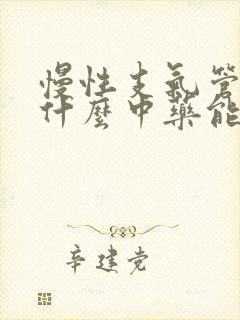 慢性支氣管
什麼中藥能
辛建党